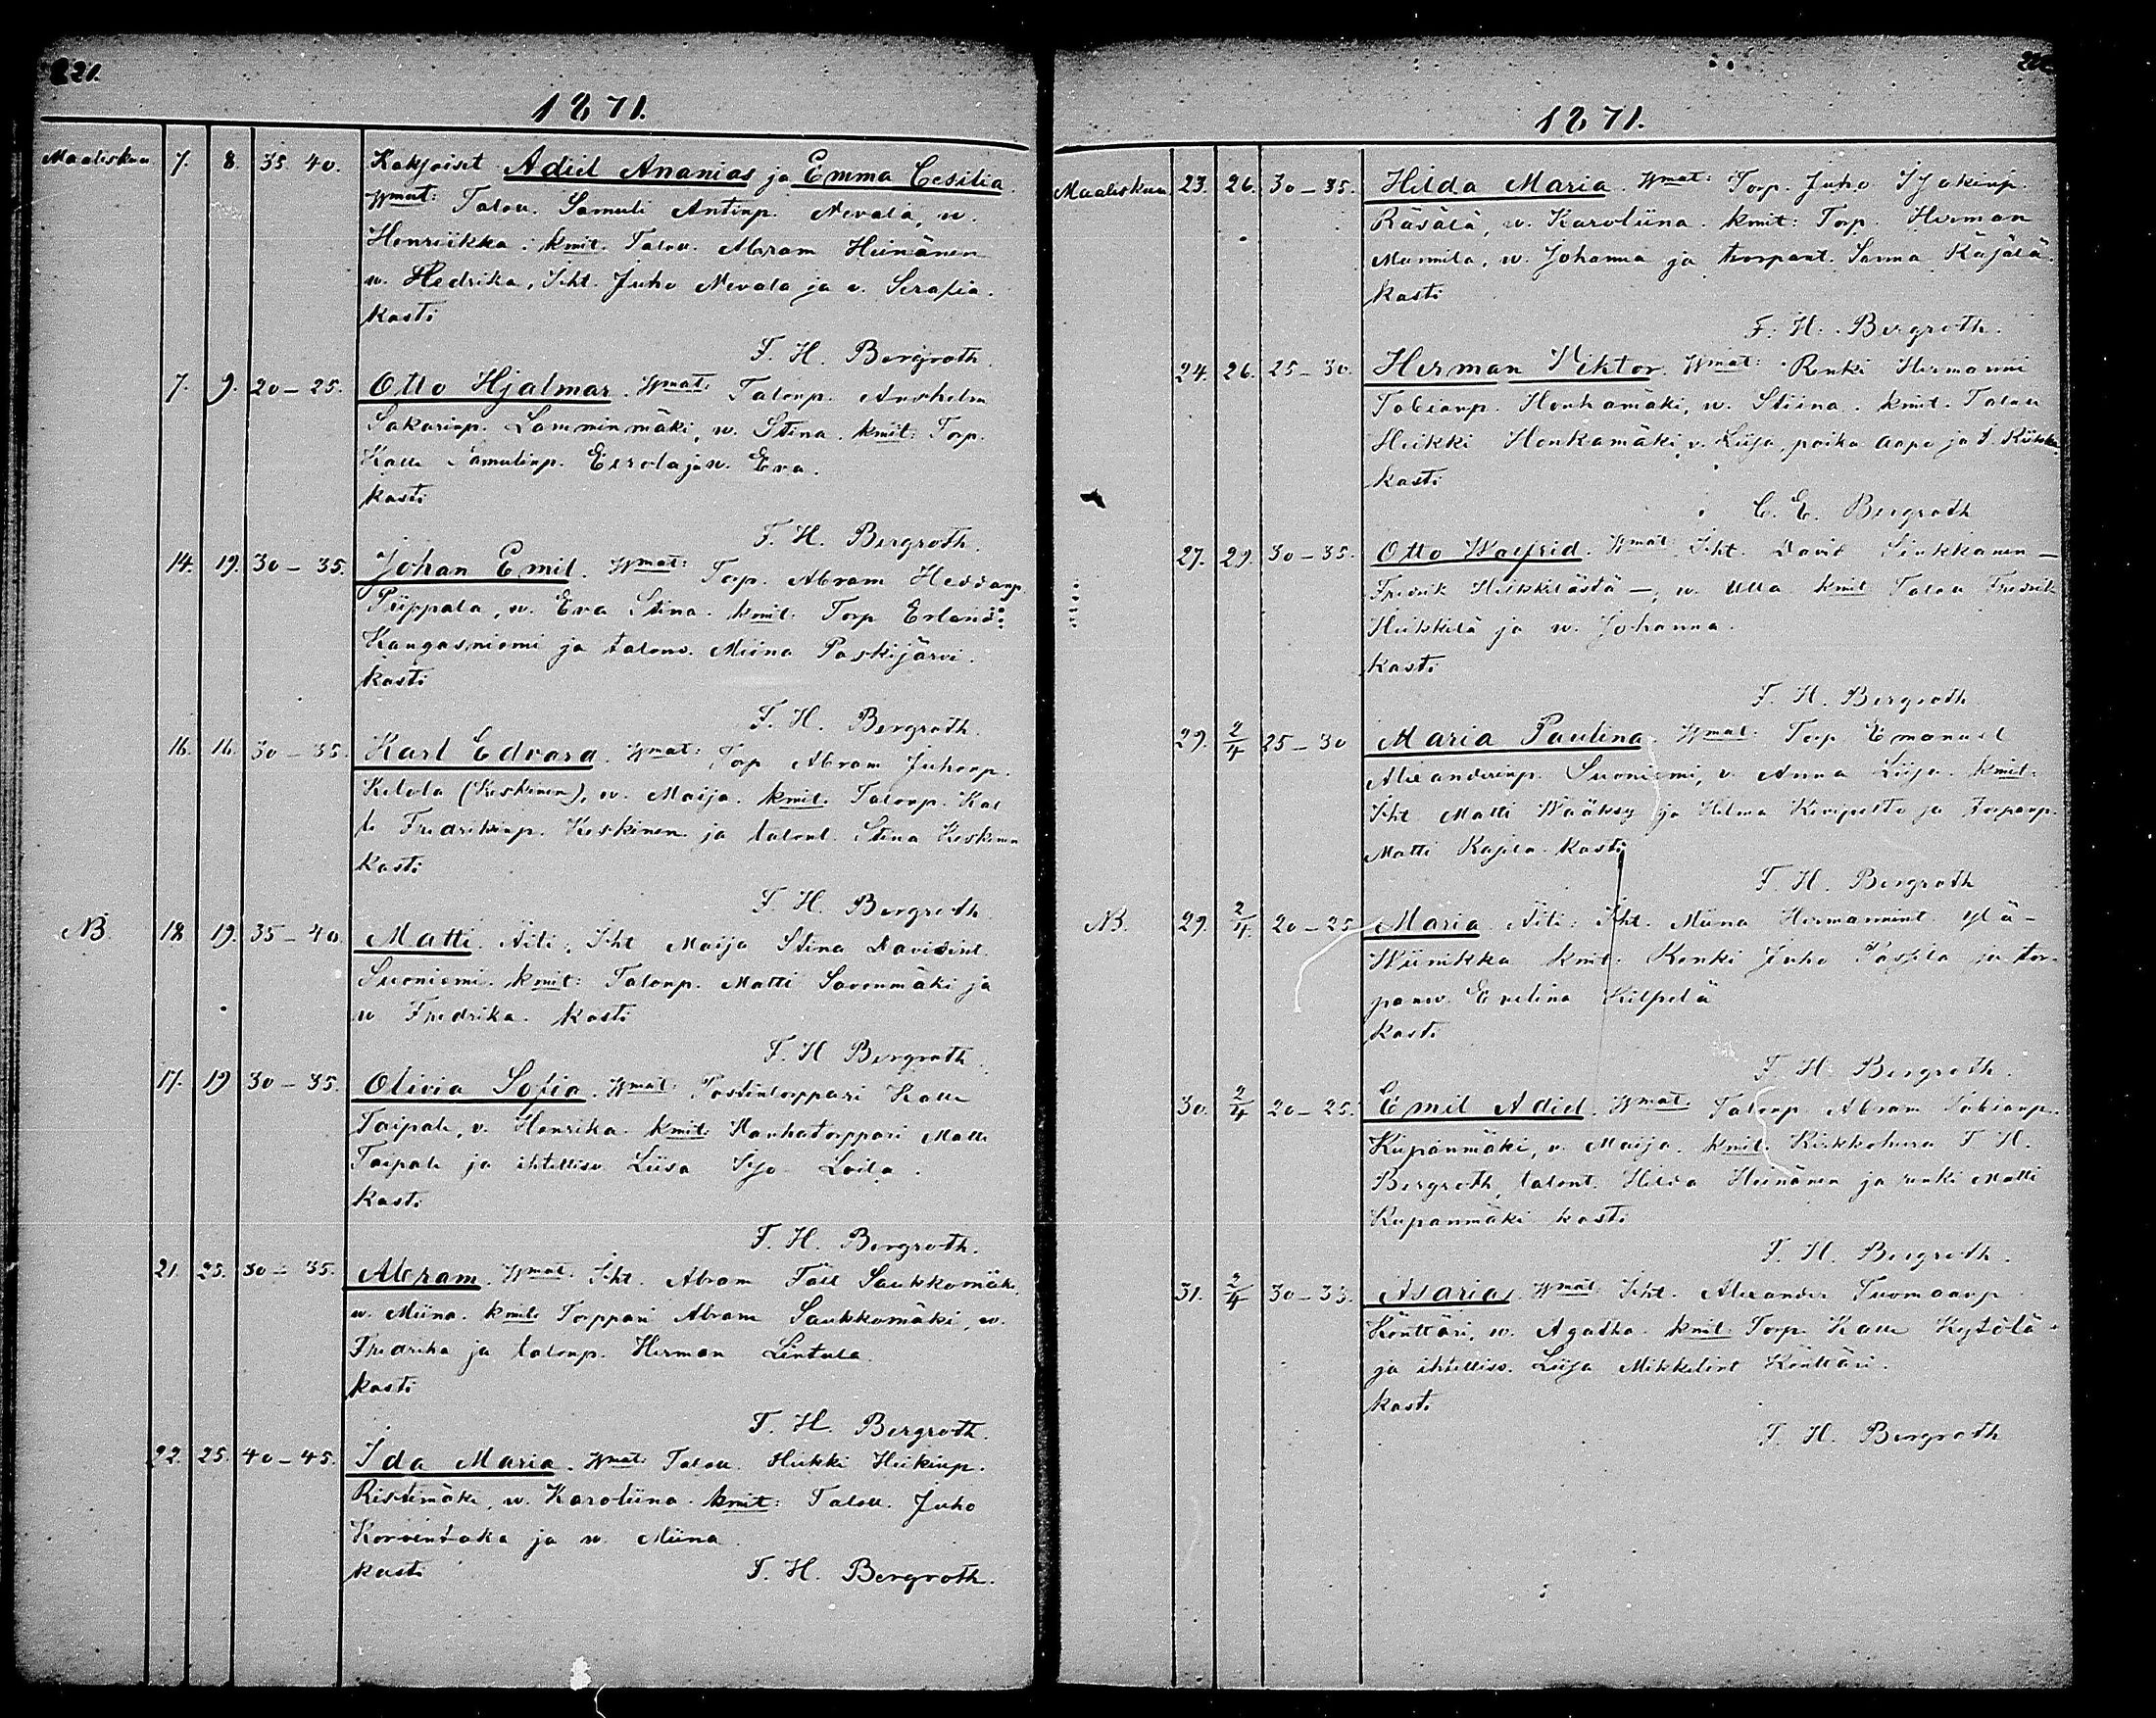 221.
1871.
Maaliskuu 7. 8. 35 40. Kaksoiset Adiel Ananias ja Emma Cesilia.
Wmat: Talon. Samuli Antinp. Nevala, w.
Henriikka. kmit. Talon. Abram Heinänen
w. Hedrika, Itht. Juho Nevala ja v. Serafia.
kasti
F. H. Bergroth.
7. 9. 20-25. Otto Hjalmar. Wmat: Talonp. Anshelm
Sakarinp. Lamminmäki, w. Stina. kmit: Torp.
Kalle Samulinp. Eerola ja w. Eva.
kasti
F. H. Bergroth.
14. 19. 30-35. Johan Emil. Wmat: Torp. Abram Heddanp.
Piippala, w. Eva Stina. kmit. Torp Erland
Kangasniemi ja talonv. Miina Paskijärvi.
kasti
F. H. Bergroth.
16. 16. 30-35. Karl Edvard. Wmat: Torp Abram Juhonp.
Ketola (Keskinen), w. Maija. kmit. Talonp. Kal
le Fredrikinp. Keskinen ja talont. Stina Keskinen
kasti
F. H. Bergroth
NB. 18 19. 35-40. Matti. Äiti: Itht Maija Stina Davidint.
Suoniemi. kmit: Talonp. Matti Savonmäki ja
w Fredrika. kasti
F. H Bergroth.
17. 19 30-35. Olivia Sofia. Wmat: Postintorppari Kalle
Taipale, v. Henrika. kmit: Rauhatorppari Matti
Taipale ja ihtellisv Liisa Iljo Loila.
kasti
F. H. Bergroth.
21. 25. 30-35. Abram. Wmat. Itht. Abram Fält Saukkomäki,
w. Miina. kmit: Torppari Abram Saukkomäki, w.
Fredrika ja talonp. Herman Lintula.
kasti
F. H. Bergroth.
22. 25. 40-45. Ida Maria. Wmat. Talon. Heikki Heikinp.
Ristimäki, w. Karoliina. kmit: Talon. Juho
Korventaka ja w. Miina.
kasti F. H. Bergroth.
1871.
Maaliskuu 23. 26. 30-35. Hilda Maria. Wmat: Torp. Juho
Räsälä, w. Karoliina. kmit: Torp. Herman
Mannila, w. Johanna ja torpant. Sanna Käjälä.
kasti
F. H. Bergroth.
24. 26. 25-30. Herman Viktor. Wmat: Renki Hermanni
Tobianp. Honkamäki, w. Stiina. kmit. Talon
Heikki Honkamäki, v. Liisa, poika Aapo ja t. Riikka
kasti
C. E. Bergroth
27. 29. 30-35. Otto Walfrid. Wmat Itht. David Sinkkanen -
Fredrik Heikkilästä -, w. Ulla kmit Talon Fredrik
Heikkilä ja w. Johanna.
kasti
F. H. Bergroth
29. 2/4 25-30 Maria Paulina. Wmat. Torp Emanuel
Alexanderinp. Suoniemi, v. Anna Liisa. kmit.
Itht Matti Wääksy ja Hilma Kivipelto ja torpanp.
Matti Rajala. kasti
F. H. Bergroth
NB. 29. 2/4. 20-25 Maria. Äiti: Itht. Miina Hermannint. Ylä-
Wiinikka kmit. Renki Juho Passila ja tor-
panv. Evelina Kilpelä
kasti
F. H. Bergroth.
30. 2/4 20-25. Emil Adiel. Wmat. Talonp. Abram Tobianp.
Kupanmäki, v. Maija. kmit. Kirkkoherra F. H.
Bergroth, talont. Hilda Heinänen ja renki Matti
Kupanmäki kasti
F. H. Bergroth.
31. 2/4 30-35. Asarias. Wmat. Itht. Alexander Tuomaanp.
Könttäri, w. Agatha. kmit. Torp. Kalle Kytölä
ja ihtellisv. Liisa Mikkelint Könttäri.
kasti
F. H. Bergroth